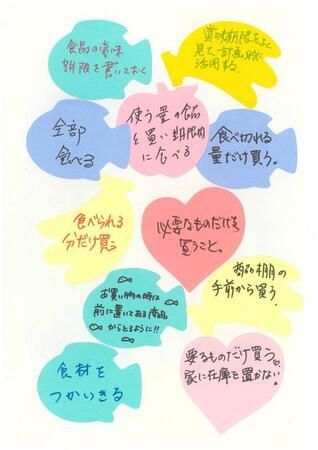 食品の賞味
期限を書いておく
賞味期限をよく
見て、計画的に
活用する。
全部
食べる
使う量の食品
を買い期限内
に食べる
食べ切れる
量だけ買う。
食べられる
分だけ買う
必要なものだけを
買うこと。
商品棚の
手前から買う
お買い物の時は
前に置いてある商品
からとるように!!
食材を
つかいきる
要るものだけ買う。
家に在庫を置かない。